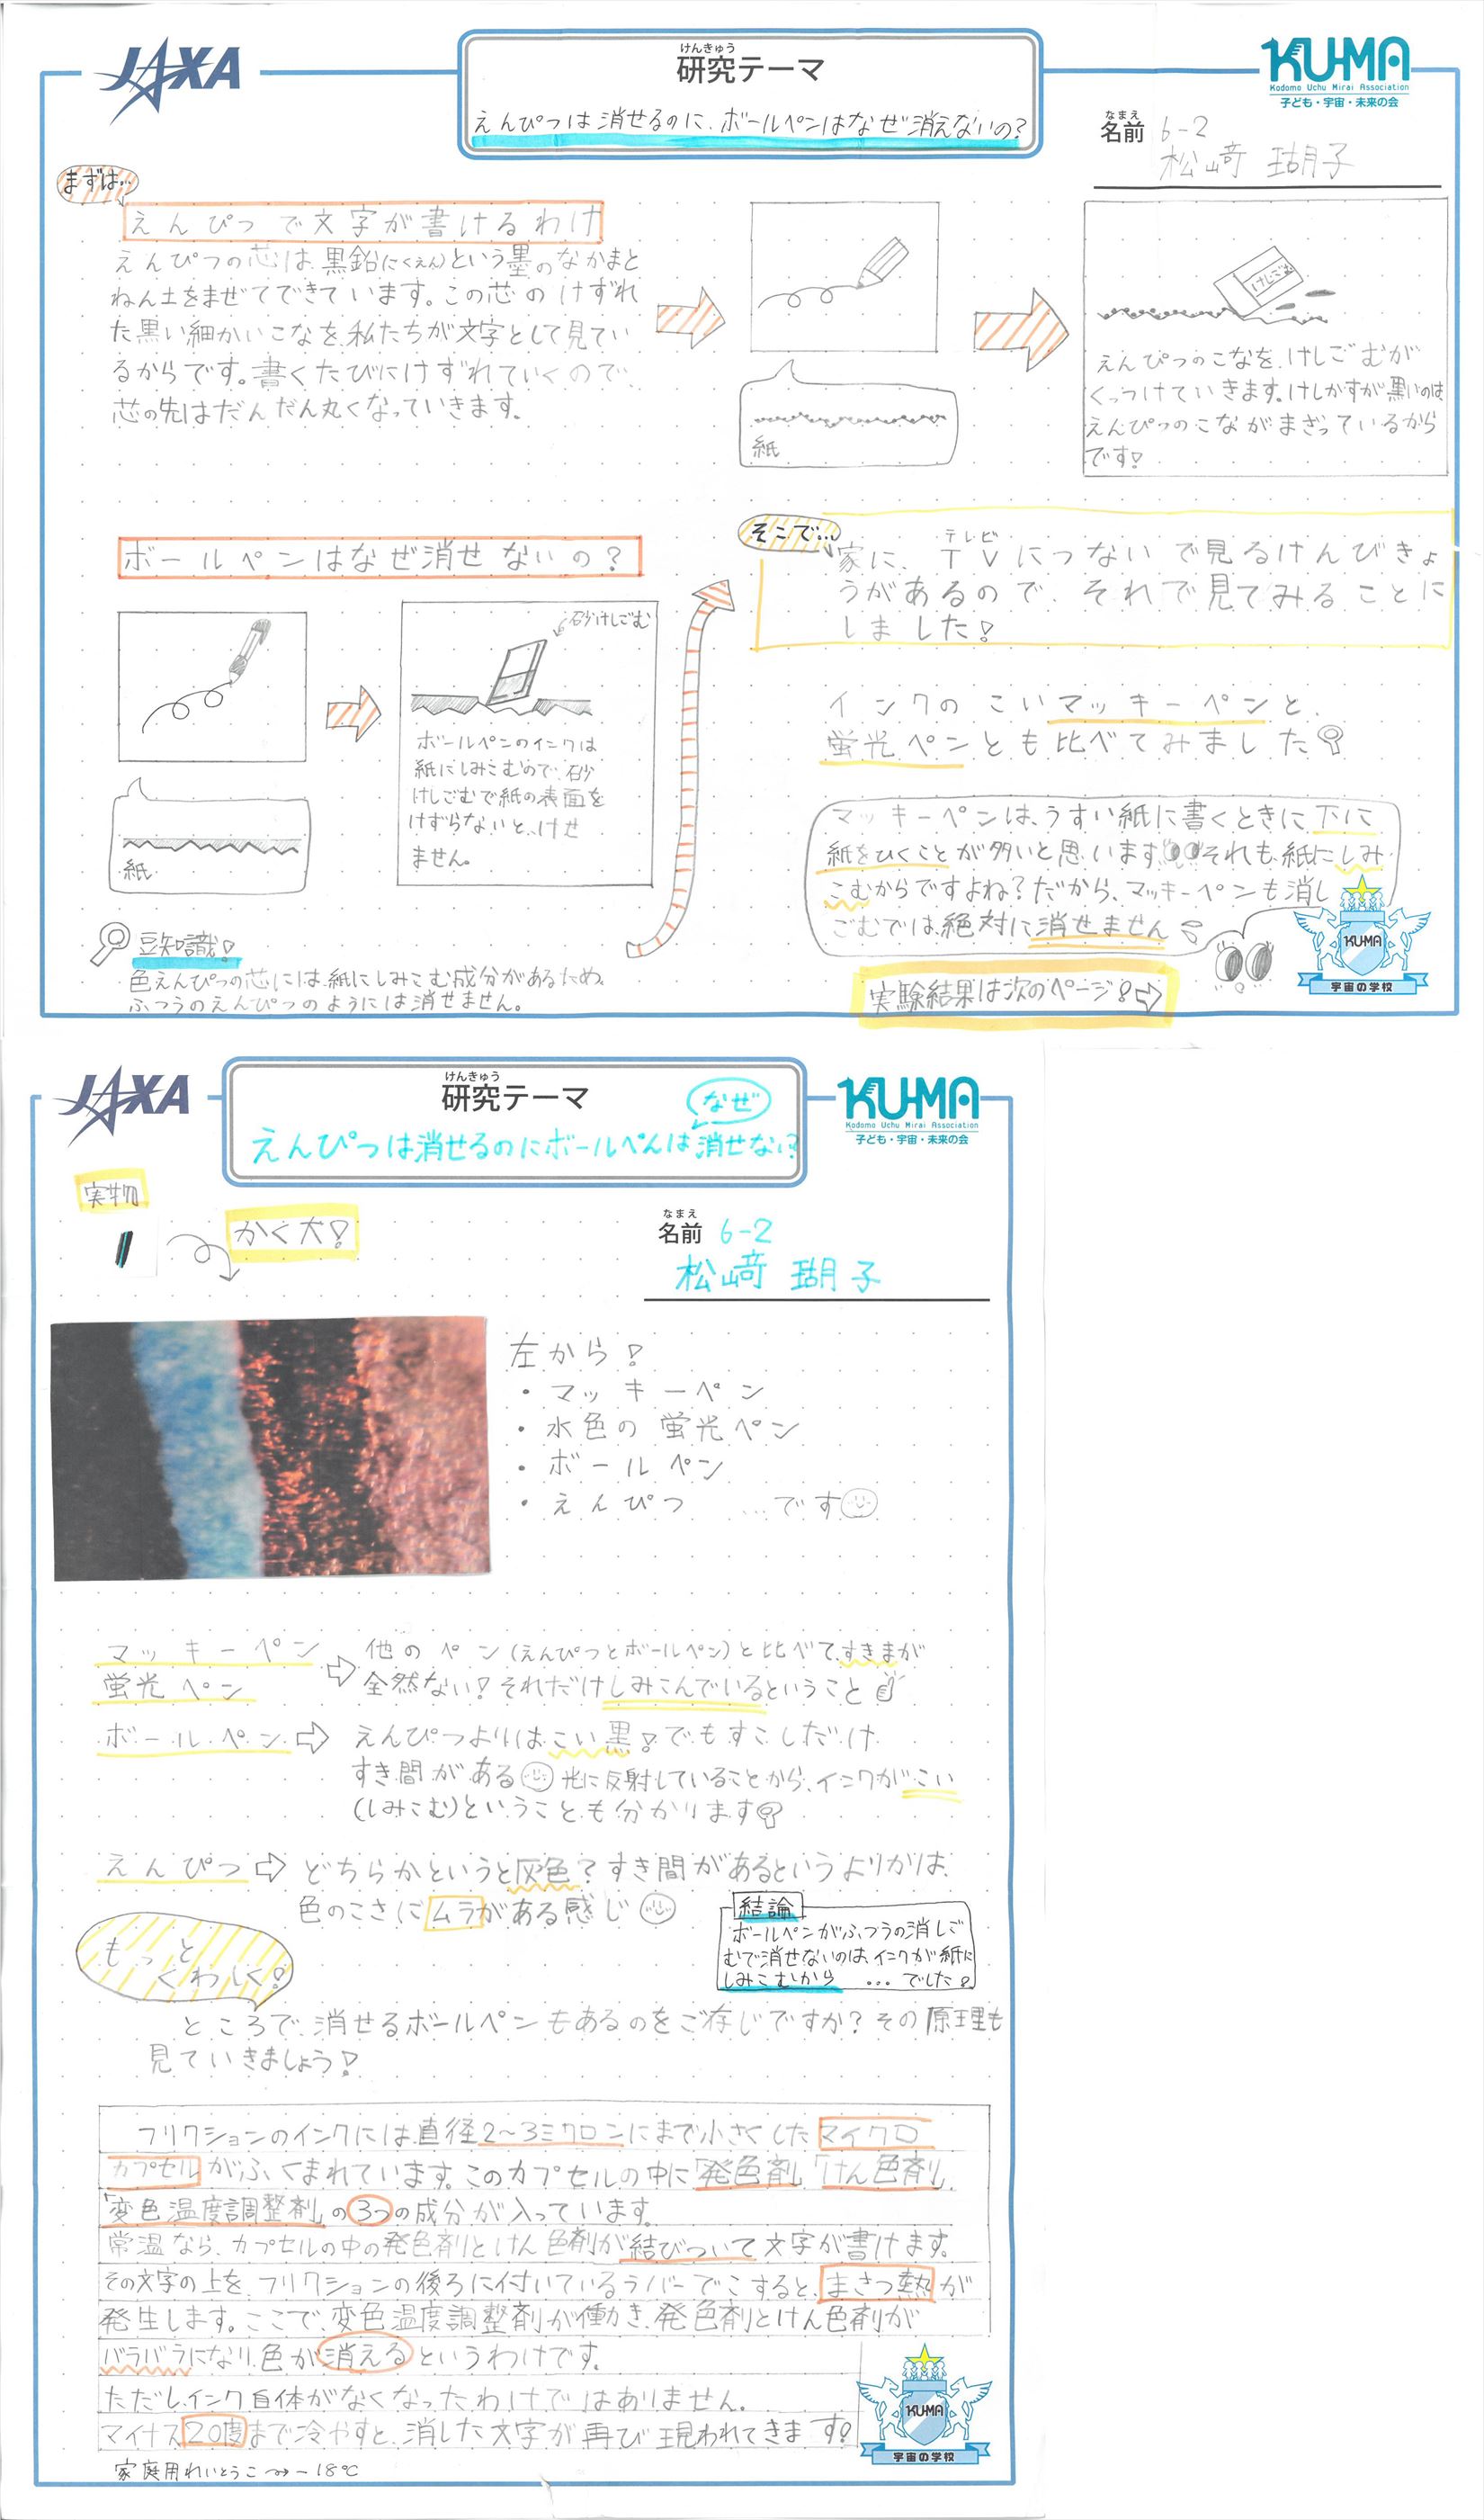 JAXA
けんきゅう
研究テーマ
えんぴつは消せるのに、ボールペンはなぜ消えないの？
KU-MA
Kodomo Uchu Mirai Association
子ども・宇宙・未来の会
なまえ
名前 6-2
松﨑 瑚子
まずは…
えんぴつで文字が書けるわけ
えんぴつの芯は、黒鉛(こくえん)という墨のなかまと
ねん土をまぜてできています。この芯のけずれ
た黒い細かいこなを、私たちが文字として見てい
るからです。書くたびにけずれていくので、
芯の先はだんだん丸くなっていきます。
紙
けしごむ
えんぴつのこなを、けしごむが
くっつけていきます。けしかすが黒いのは
えんぴつのこながまざっているから
です!
ボールペンはなぜ消せないの？
紙
砂けしごむ
ボールペンのインクは
紙にしみこむので、砂
けしごむで紙の表面を
けずらないと、けせ
ません。
豆知識!
色えんぴつの芯には、紙にしみこむ成分があるため、
ふつうのえんぴつのようには消せません。
そこで…
テレビ
家に、TVにつないで見るけんびきょ
うがあるので、それで見てみることに
しました!
インクのこいマッキーペンと、
蛍光ペンとも比べてみました
マッキーペンは、うすい紙に書くときに下に
紙をひくことが多いと思います それも紙にしみ
こむからですよね？だから、マッキーペンも消し
ごむでは絶対に消せません
実験結果は次のページ!
KUMA
宇宙の学校
JAXA
けんきゅう
研究テーマ
なぜ
えんぴつは消せるのにボールペんは消せない?
KU-MA
Kodomo Uchu Mirai Association
子ども・宇宙・未来の会
実物
かく大!
なまえ
名前 6-2
松﨑 瑚子
左から!
・マッキーペン
・水色の蛍光ペン
・ボールペン
・えんぴつ …です
マッキーペン
蛍光ペン
他のペン(えんぴつとボールペン)と比べてすきまが
全然ない! それだけしみこんでいるということ
ボールペン
えんぴつよりはこい黒! でもすこしだけ
すき間がある 光に反射していることから、インクがこい
(しみこむ)ということも分かります
えんぴつ
どちらかというと灰色？すき間があるというよりかは、
色のこさにムラがある感じ
結論
ボールペンがふつうの消しご
むで消せないのは、インクが紙に
しみこむから …でした!
もっと
くわしく!
ところで、消せるボールペンもあるのをご存じですか？その原理も
見ていきましょう!
フリクションのインクには直径2～3ミクロンにまで小さくしたマイクロ
カプセルがふくまれています。このカプセルの中に「発色剤」「けん色剤」
「変色温度調整剤」の3つの成分が入っています。
常温なら、カプセルの中の発色剤とけん色剤が結びついて文字が書けます。
その文字の上を、フリクションの後ろに付いているラバーでこすると、まさつ熱が
発生します。ここで、変色温度調整剤が働き、発色剤とけん色剤が
バラバラになり、色が消えるというわけです。
ただし、インク自体がなくなったわけではありません。
マイナス20度まで冷やすと、消した文字が再び現われてきます!
家庭用れいとうこ～-18℃
KUMA
宇宙の学校